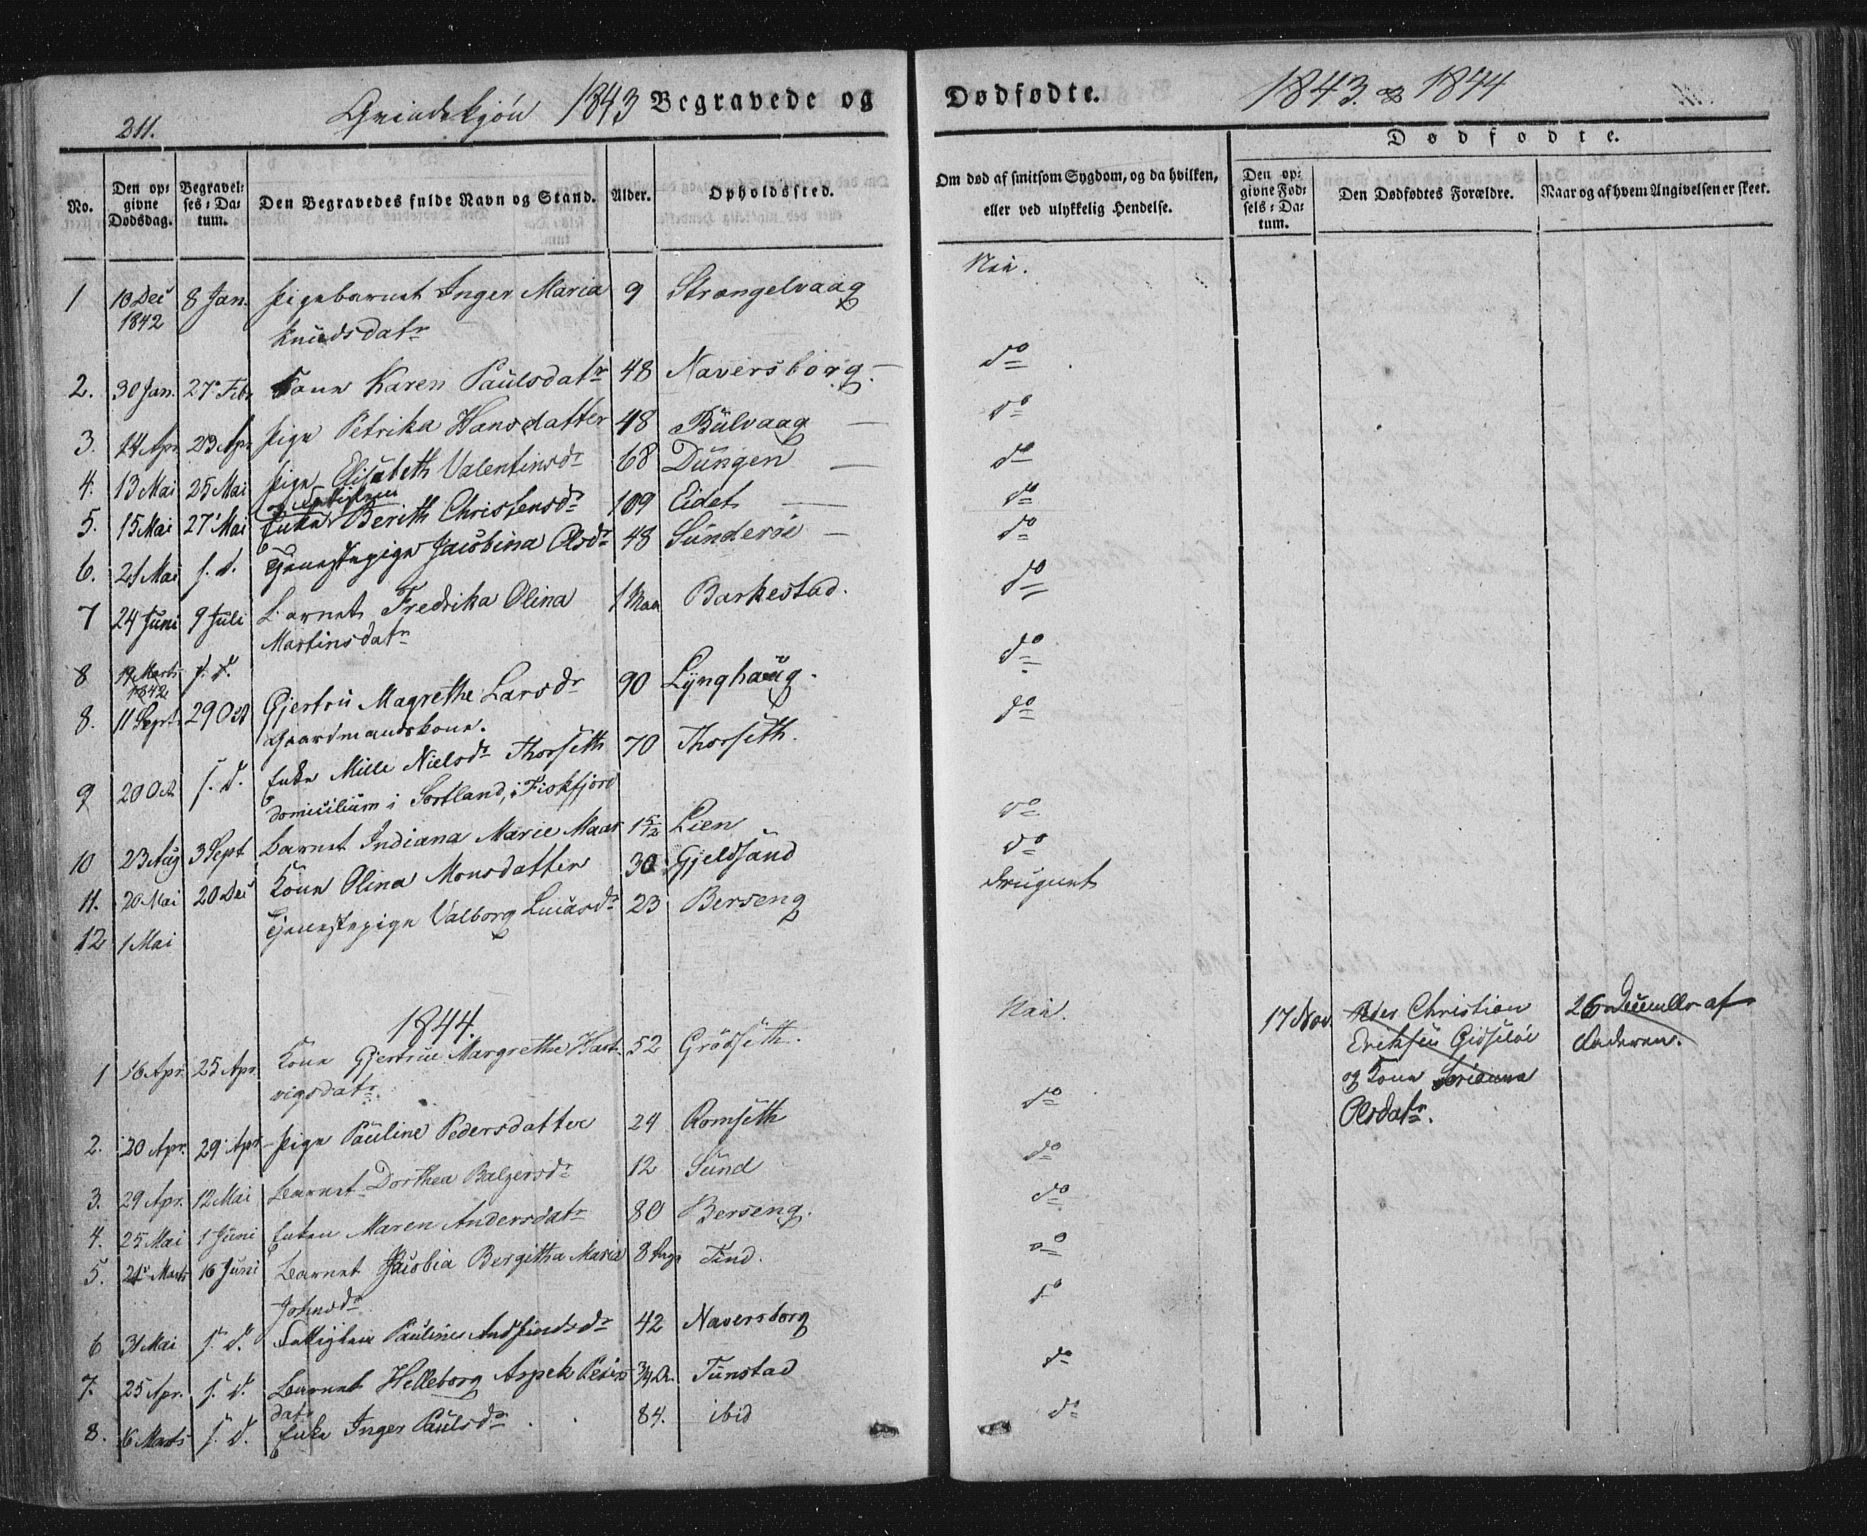 211. Qvindekjøn 1843 Begravede og
No. Den opgivne Dødsdag. Begravelses-Datum. Den Begravedes fulde Navn og Stand. Alder. Opholdssted.
1 10 Dec 1842 8 Jan. Pigebarnet Inger Maria 9 Strengelvaag
Knudsdatr
2. 30 Jan. 27 Febr Kone Karen Paulsdatr 48 Naversborg
3. 14 Apr 23 Apr Pige Petrika Hansdatter 48 Bülvaag
4. 13 Mai 25 Mai Pige Elisabeth Valentinsdr 68 Dungen
5. 15 Mai 27 Mai Enke Berith Christensdr 109 Eidet
6. 21 Mai s. d. Tjenestepige Jacobina Olsdr 48 Sünderøe
7 24 Juni 9 Juli Barnet Fredrika Olina 1 Maa Barkestad.
Martinsdatr
8 19 Marts 1842 s. d.
8. 11 Sept. 29 Oct Gjertru Magrethe Larsdr 90 Lynghaug.
Gaardmandskone.
9 20 Oct s. d. Enke Mille Nielsdr Thorseth 70 Thorseth.
domicilium i Sortland, i Fiskfjord
10 23 Aug 3 Sept Barnet Indiana Marie Maas 1 5/12 Lien
11. 20 Mai 20 Dec Kone Olina Monsdatter 30 Gjeldsand
12 1 Mai Tjenestepige Valborg Lucasdr 23 Berseng
1844.
1 16 Apr. 25 Apr. Kone Gjertrue Margrethe Hart- 52 Grødseth.
vigsdatr.
2. 20 Apr. 29 Apr Pige Pauline Pedersdatter 24 Romseth
3. 29 Apr. 12 Mai Barnet Dorthea Balzersdr 12 Sund
4. 25 Mai 1 Juni Enken Maren Andersdatr 80 Berseng.
5. 21 Marts 16 Juni Barnet Jacobia Bergitha Maria 8 Tind.
Johnsdr
6 31 Mai s. d. Fattiglem Pauline Andfindsdr 42 Naversborg
7. 25 Apr. s. d. Barnet Helleborg Aspek Peters Tunstad
datr
8. 6 Marts s. d. Enke Inger Paulsdr 84. ibid
Dødfødte. 1843 & 1844
Dødfødte.
Om død af smitsom Sygdom, og da hvilken, eller ved ulykkelig Hendelse. Den opgivne Fødsels-Datum. Den Dødfødtes Forældre. Naar og af hvem Angivelsen er skeet.
Nei.
do
do
do
do
do
do
do
do
do
do
druknet
Nei. 17 Nov. Peder Christian 26 December af
Eriksen Gidsløe Faderen.
og Kone
do Olsdatr.
do
do
do
do
do
do